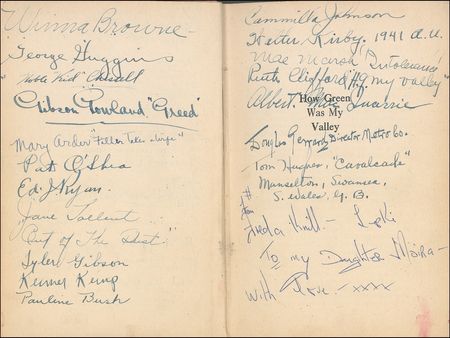 Winna Browne
George Huggins
"Kid"
Gibson Gowland "Greed"
Mary Arden "Father Takes a Wife"
Pat O'Shea
Ed. J. Ryan.
"Jane Talent"
"Out of The Dust"
Tyler Gibson
Kerner King
Pauline Bush
Cammilla Johnson
Walter Kirby, 1941 A.U.
Mae Marsh "Intolerance"
Ruth Clifford & H.G. my Valley"
Albert Mac Quarrie
How Green
Was My
Valley
Douglas Gerrard Director Metro Co.
Tom Hughes, "Cavalcade"
Manselton, Swansea,
S. Wales, G. B.
To my Daughter Moira -
With Love - xxxx